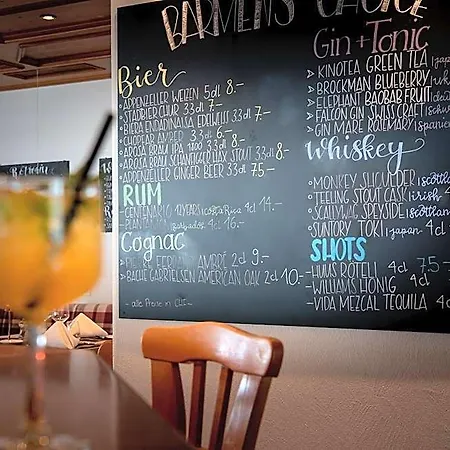 BARMEN'S CHOICE
Bier
APPENZELLER WEIZEN 5dl 8.-
STADTBIER CHUR 33dl 7.-
BIERA ENGIADINAISA EDELWEISS 33dl 7.-
CHOPFAB AMBER 33dl 6.-
AROSA BRÄU IPA 1800 33dl 8.-
AROSA BRÄU SCHANFIGGER HAY STOUT 33dl 8.-
APPENZELLER GINGER BEER 33dl 7.5
RUM
CENTENARIO 12YEARS |COSTA RICA 4cl 14.-
4cl 16.-
Cognac
PIERRE FERRAND AMBRÉ 2cl 9.-
BACHE GABRIELSEN AMERICAN OAK 2cl 10.-
- alle Preise in CHF -
Gin + Tonic
KINOTEA GREEN TEA |JAPAN
BROCKMAN BLUEBERRY
ELEPHANT BAOBAB FRUIT
FALCON GIN SWISS CRAFT
GIN MARE ROSEMARY |SPANIEN
Whiskey
MONKEY SHOULDER |SCOTLAND
TEELING STOUT CASK |IRISH 4cl
SCALLYWAG SPEYSIDE |SCOTLAND
SUNTORY TOKI |JAPAN 4cl
SHOTS
HUUS RÖTELI 4cl 7.5
WILLIAMS HONIG 4cl
VIDA MEZCAL TEQUILA 4cl